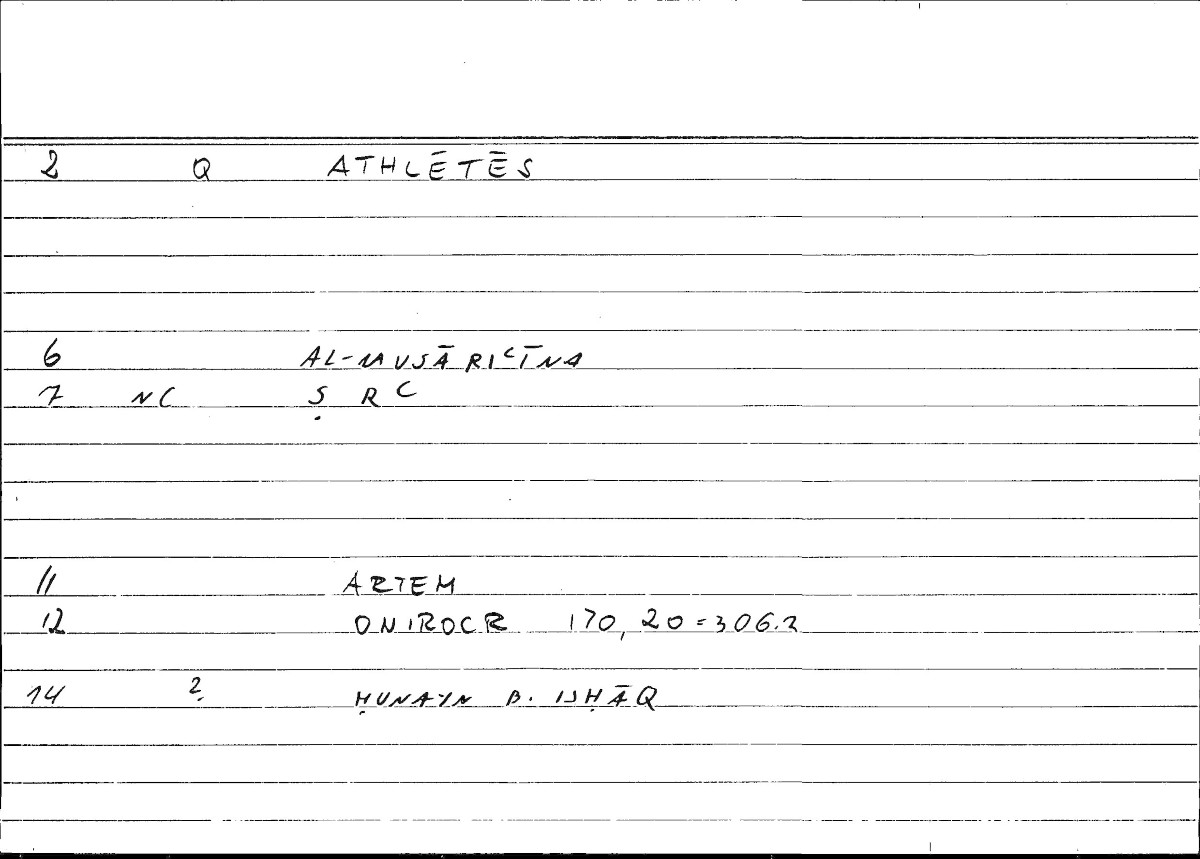 2 Q ATHLĒTĒS
6 AL-MUSĀRIʿĪNA
7 NC Ṣ R ʿ
11 ARTEM
12 ONIROCR 170, 20 = 306.2
14 ? ḤUNAYN B. ISḤĀQ